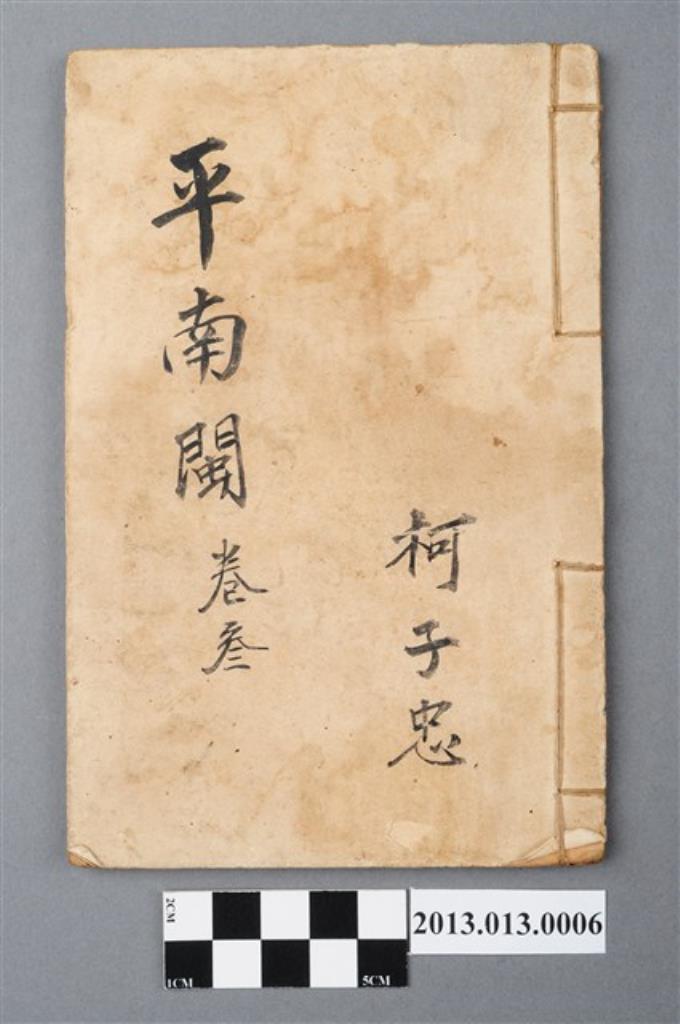 平南閩 卷叁
柯子忠
2CM
1CM
5CM
2013.013.0006